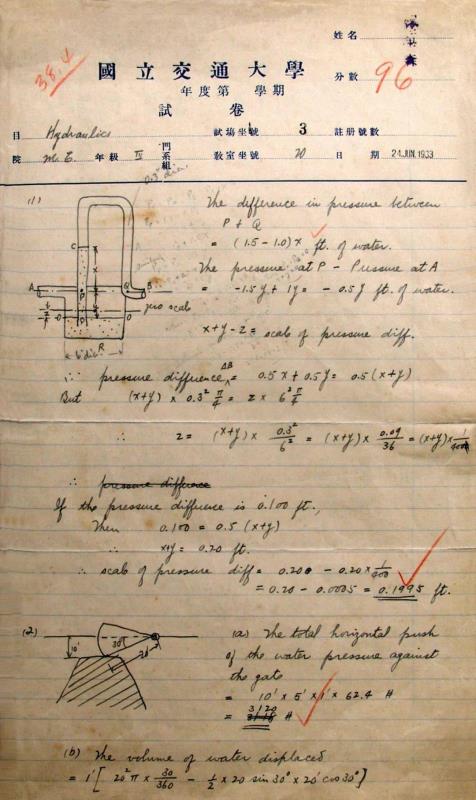 38.4
姓名
國立交通大學
分數 96
年度第 學期
試卷
目 Hydraulics 試場坐號 3 註册號數
院 M.E. 年級 IV 門系組 教室坐號 20 日期 24 JUN.1933
(1)
The difference in pressure between
P & Q
= (1.5 - 1.0)x ft. of water.
The pressure at P - Pressure at A
= -1.5y + 1y = - 0.5y ft. of water.
x+y-z = scale of pressure diff.
C
A
P
Q
B
zero scale
O
O
R
6" dia
∴ pressure difference AB = 0.5x + 0.5y = 0.5(x+y)
But (x+y) x 0.3² π/4 = z x 6² π/4
∴ z = (x+y) x 0.3²/6² = (x+y) x 0.09/36 = (x+y) x 1/400
∴ pressure difference
If the pressure difference is 0.100 ft.,
Then 0.100 = 0.5 (x+y)
∴ x+y = 0.20 ft.
∴ scale of pressure diff = 0.200 - 0.20 x 1/400
= 0.20 - 0.0005 = 0.1995 ft.
(2)
10'
30°
20'
(a) The total horizontal push
of the water pressure against
the gate
= 10' x 5' x 1' x 62.4 #
= 3120 #
(b) The volume of water displaced
= 1' [ 20² π x 30/360 - 1/2 x 20 sin 30° x 20' cos 30° ]